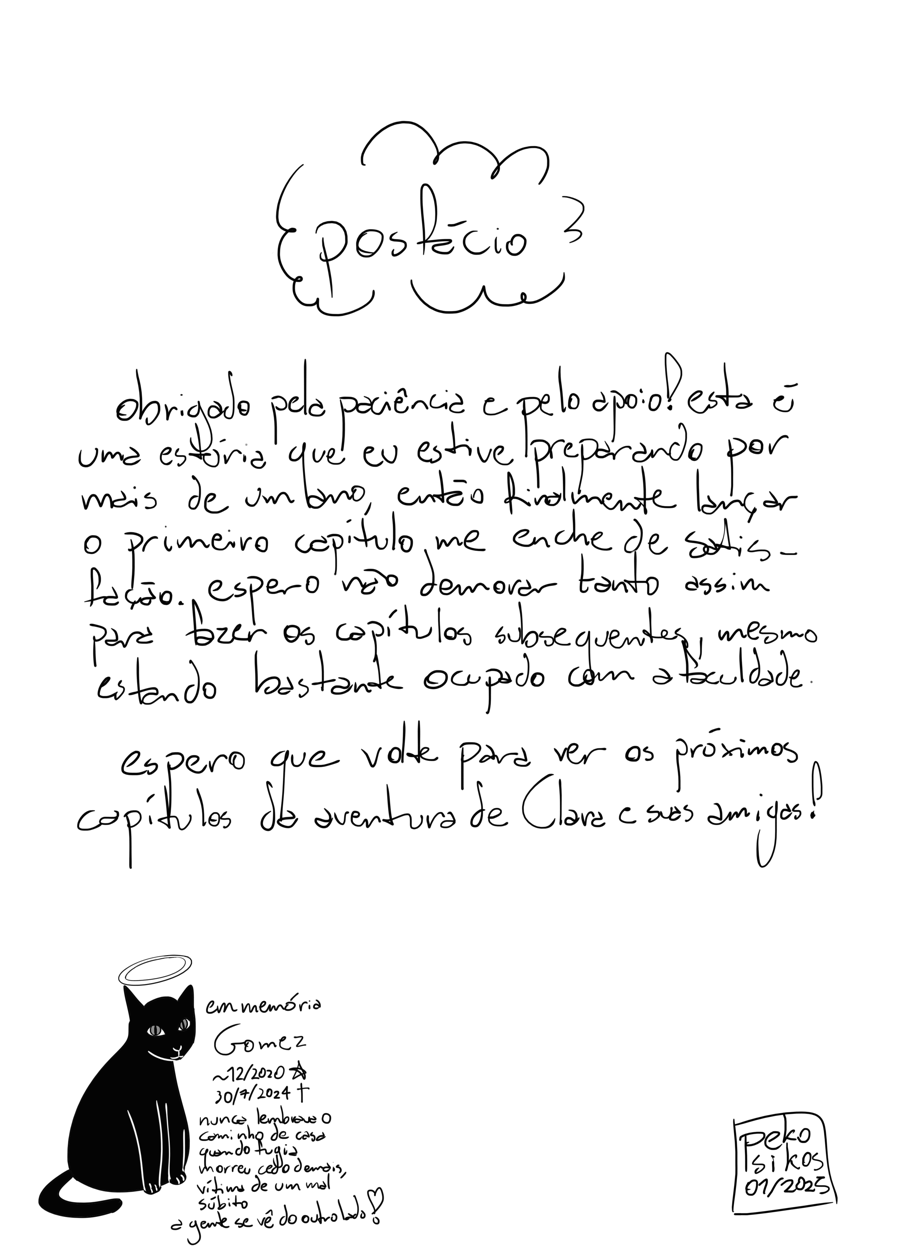 posfácio
obrigado pela paciência e pelo apoio! esta é
uma estória que eu estive preparando por
mais de um ano, então finalmente lançar
o primeiro capítulo me enche de satis-
fação. espero não demorar tanto assim
para fazer os capítulos subsequentes, mesmo
estando bastante ocupado com a faculdade.
espero que volte para ver os próximos
capítulos da aventura de Clara e suas amigas!
em memória
Gomez
~12/2020 ☆
30/7/2024 †
nunca lembrava o
caminho de casa
quando fugia
morreu cedo demais,
vítima de um mal
súbito
a gente se vê do outro lado!
peko
sikos
01/2025